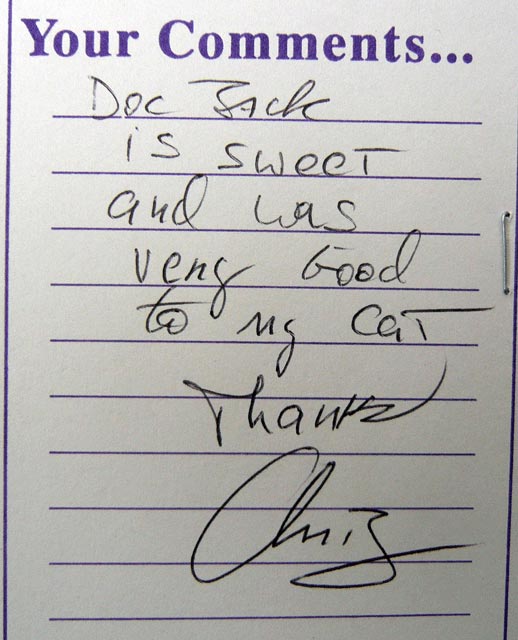 Your Comments...
Doc Back
is sweet
and was
very Good
to my cat
Thanks
Chris